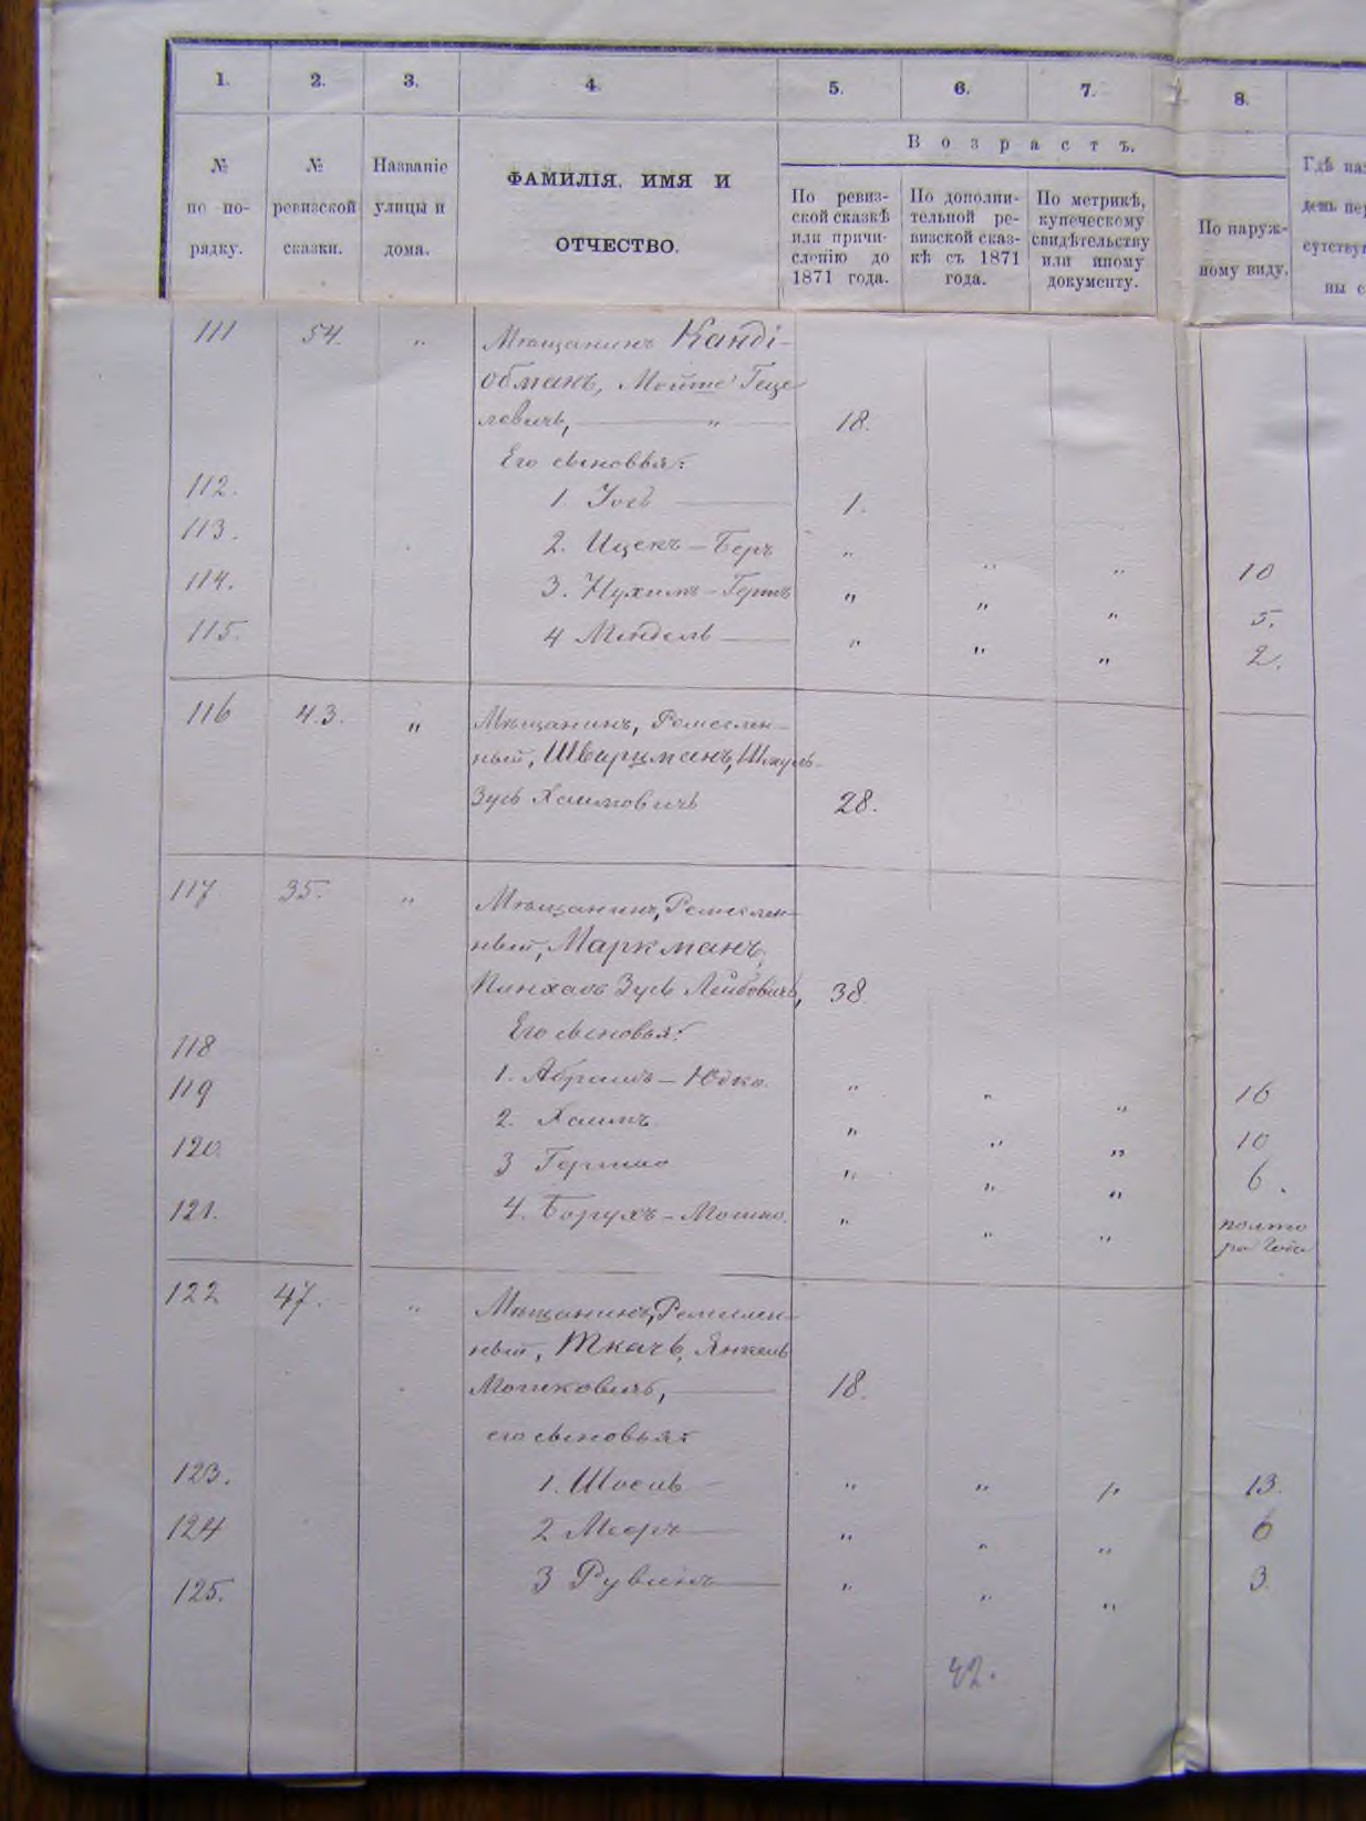 1. 2. 3. 4. 5. 6. 7. 8.
Возрастъ.
№ по по-рядку.
№ ревизской сказки.
Названіе улицы и дома.
ФАМИЛІЯ, ИМЯ И
ОТЧЕСТВО.
По ревиз-
ской сказкѣ
или причи-
сленію до
1871 года.
По дополни-
тельной ре-
визской сказ-
кѣ съ 1871
года.
По метрикѣ,
купеческому
свидѣтельству
или иному
документу.
По наруж-
ному виду.
Гдѣ
день
111 54. " Мѣщанинъ Канді-
обманъ, Мойше Геце
левичъ, " 18.
Его сыновья:
112. 1. Іось 1.
113. 2. Ицекъ-Беръ " " " 10
114. 3. Нухимъ-Гершъ " " " 5.
115. 4 Мендель " " " 2.
116 43. " Мѣщанинъ, Ремеслен-
ный, Шварцманъ, Шмуль
Зусь Хаимовичъ 28.
117 35. " Мѣщанинъ, Ремеслен-
ный, Маркманъ,
Пинхасъ Зусь Лейбовичъ, 38
Его сыновья:
118 1. Абрамъ-Юдко " " " 16
119 2. Хаимъ " " " 10
120 3 Гершко " " " 6.
121. 4. Борухъ-Мошко. " " " полто
ра года
122 47. " Мѣщанинъ, Ремеслен-
ный, Ткачъ, Янкель
Мошковичъ, 18.
его сыновья:
123. 1. Шоель " " " 13.
124 2 Мееръ " " " 6
125. 3 Рувинъ " " " 3.
42.